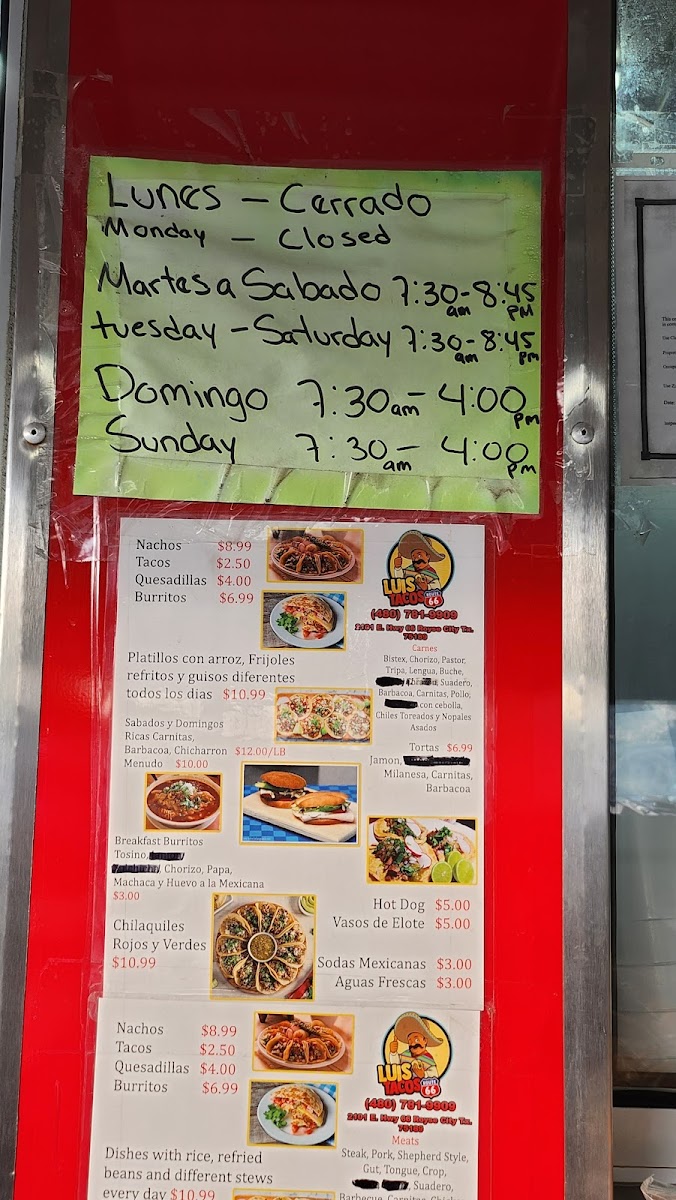 Lunes - Cerrado
Monday - Closed
Martes a Sabado 7:30am - 8:45PM
tuesday - Saturday 7:30am - 8:45pm
Domingo 7:30am - 4:00pm
Sunday 7:30am - 4:00pm
Nachos $8.99
Tacos $2.50
Quesadillas $4.00
Burritos $6.99
LUIS
TACOS ROUTE 66
(480) 781-9909
2101 E. Hwy 66 Royse City Tx.
75189
Carnes
Bistex, Chorizo, Pastor,
Tripa, Lengua, Buche,
Suadero,
Barbacoa, Carnitas, Pollo,
con cebolla,
Chiles Toreados y Nopales
Asados
Platillos con arroz, Frijoles
refritos y guisos diferentes
todos los dias $10.99
Sabados y Domingos
Ricas Carnitas,
Barbacoa, Chicharron $12.00/LB
Menudo $10.00
Tortas $6.99
Jamon,
Milanesa, Carnitas,
Barbacoa
Breakfast Burritos
Tosino,
Chorizo, Papa,
Machaca y Huevo a la Mexicana
$3.00
Chilaquiles
Rojos y Verdes
$10.99
Hot Dog $5.00
Vasos de Elote $5.00
Sodas Mexicanas $3.00
Aguas Frescas $3.00
Nachos $8.99
Tacos $2.50
Quesadillas $4.00
Burritos $6.99
LUIS
TACOS ROUTE 66
(480) 781-9909
2101 E. Hwy 66 Royse City Tx.
75189
Meats
Steak, Pork, Shepherd Style,
Gut, Tongue, Crop,
Suadero,
Barbecue, Carnitas, Chicken
Dishes with rice, refried
beans and different stews
every day $10.99